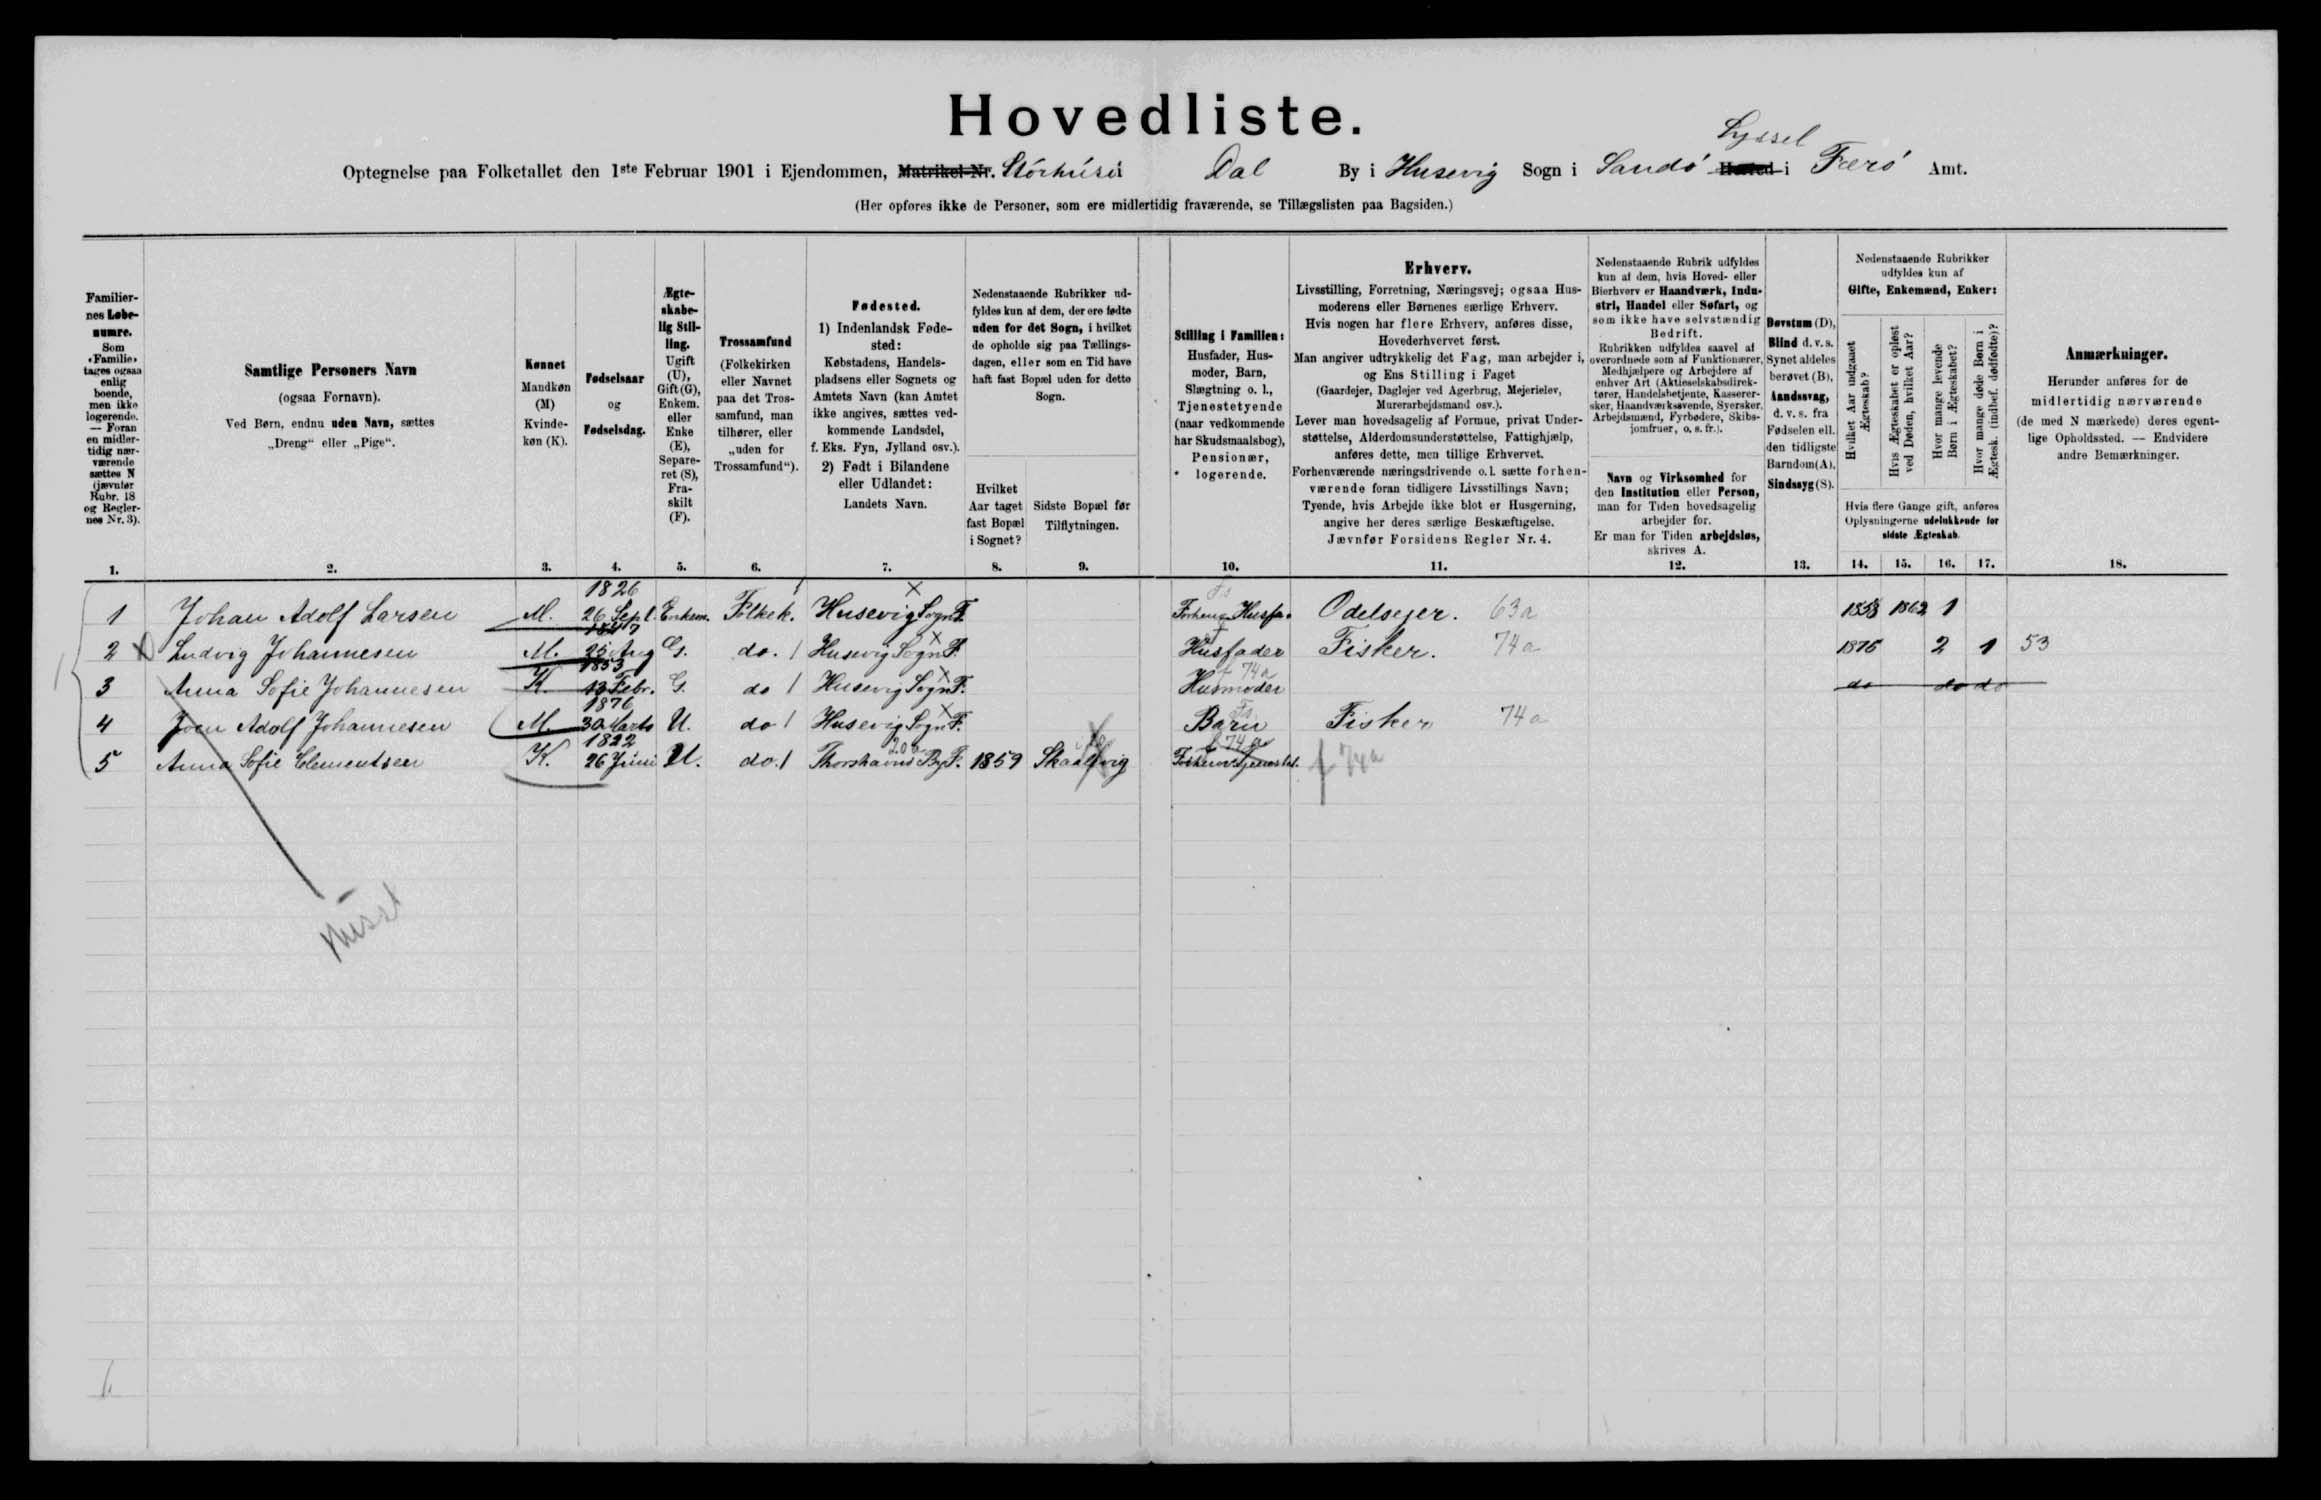 Hovedliste.
Syssel
Optegnelse paa Folketallet den 1ste Februar 1901 i Ejendommen, Matrikel-Nr. Stórhúsið Dal By i Husevig Sogn i Sandö Herred i Færö Amt.
(Her opføres ikke de Personer, som ere midlertidig fraværende, se Tillægslisten paa Bagsiden.)
Familier-
nes Løbe-
numre.
Som
«Familie»
tages ogsaa
enlig
boende,
men ikke
logerende.
— Foran
en midler-
tidig nær-
værende
sættes N
(jævnfør
Rubr. 18
og Regler-
nes Nr. 3).
1.
Samtlige Personers Navn
(ogsaa Fornavn).
Ved Børn, endnu uden Navn, sættes
„Dreng“ eller „Pige“.
2.
Kønnet
Mandkøn
(M)
Kvinde-
køn (K).
3.
Fødselsaar
og
Fødselsdag.
4.
Ægte-
skabe-
lig Stil-
ling.
Ugift
(U),
Gift (G),
Enkem.
eller
Enke
(E),
Separe-
ret (S),
Fra-
skilt
(F).
5.
Trossamfund
(Folkekirken
eller Navnet
paa det Tros-
samfund, man
tilhører, eller
„uden for
Trossamfund“).
6.
Fødested.
1) Indenlandsk Føde-
sted:
Købstadens, Handels-
pladsens eller Sognets og
Amtets Navn (kan Amtet
ikke angives, sættes ved-
kommende Landsdel,
f. Eks. Fyn, Jylland osv.).
2) Født i Bilandene
eller Udlandet:
Landets Navn.
7.
Nedenstaaende Rubrikker ud-
fyldes kun af dem, der ere fødte
uden for det Sogn, i hvilket
de opholde sig paa Tællings-
dagen, eller som en Tid have
haft fast Bopæl uden for dette
Sogn.
Hvilket
Aar taget
fast Bopæl
i Sognet?
8.
Sidste Bopæl før
Tilflytningen.
9.
Stilling i Familien:
Husfader, Hus-
moder, Barn,
Slægtning o. l.,
Tjenestetyende
(naar vedkommende
har Skudsmaalsbog),
Pensionær,
logerende.
10.
Erhverv.
Livsstilling, Forretning, Næringsvej; ogsaa Hus-
moderens eller Børnenes særlige Erhverv.
Hvis nogen har flere Erhverv, anføres disse,
Hovederhvervet først.
Man angiver udtrykkelig det Fag, man arbejder i,
og Ens Stilling i Faget
(Gaardejer, Daglejer ved Agerbrug, Mejerielev,
Murerarbejdsmand osv.).
Lever man hovedsagelig af Formue, privat Under-
støttelse, Alderdomsunderstøttelse, Fattighjælp,
anføres dette, men tillige Erhvervet.
Forhenværende næringsdrivende o. l. sætte forhen-
værende foran tidligere Livsstillings Navn;
Tyende, hvis Arbejde ikke blot er Husgerning,
angive her deres særlige Beskæftigelse.
Jævnfør Forsidens Regler Nr. 4.
11.
Nedenstaaende Rubrik udfyldes
kun af dem, hvis Hoved- eller
Bierhverv er Haandværk, Indu-
stri, Handel eller Søfart, og
som ikke have selvstændig
Bedrift.
Rubrikken udfyldes saavel af
overordnede som af Funktionærer,
Medhjælpere og Arbejdere af
enhver Art (Aktieselskabsdirek-
tører, Handelsbetjente, Kasserer-
sker, Haandværkssvende, Syersker,
Arbejdsmænd, Fyrbødere, Skibs-
jomfruer, o. s. fr.).
Navn og Virksomhed for
den Institution eller Person,
man for Tiden hovedsagelig
arbejder for.
Er man for Tiden arbejdsløs,
skrives A.
12.
Døvstum (D),
Blind d. v. s.
Synet aldeles
berøvet (B),
Aandssvag,
d. v. s. fra
Fødselen ell.
den tidligste
Barndom (A),
Sindssyg (S).
13.
Nedenstaaende Rubrikker
udfyldes kun af
Gifte, Enkemænd, Enker:
Hvilket Aar indgaaet
Ægteskab?
Hvis Ægteskabet er opløst
ved Døden, hvilket Aar?
Hvor mange levende
Børn i Ægteskabet?
Hvor mange døde Børn i
Ægtesk. (indbef. dødfødte)?
Hvis flere Gange gift, anføres
Oplysningerne udelukkende for
sidste Ægteskab.
14. 15. 16. 17.
Anmærkninger.
Herunder anføres for de
midlertidig nærværende
(de med N mærkede) deres egent-
lige Opholdssted. — Endvidere
andre Bemærkninger.
18.
1 Johan Adolf Larsen M. 1826 26 Sept. Enkem. Folkek. Husevig Sogn F. Forhenv. Husfa. Odelsejer. 63a 1858 1862 1
2 Ludvig Johannesen M. 1847 25 Aug G. do. Husevig Sogn F. Husfader Fisker. 74a 1876 2 1 53
3 Anna Sofie Johannesen K. 1853 13 Febr. G. do Husevig Sogn F. f 74a Husmoder do do do
4 Joen Adolf Johannesen M. 1876 30 Marts U. do Husevig Sogn F. Barn Fisker 74a
5 Anna Sofie Clementsen K. 1822 26 Juni U. do. Thorshavns By F. 1859 Skaalevig f 74a Forhenv. Tjenestet. f 74a
Huset
1.